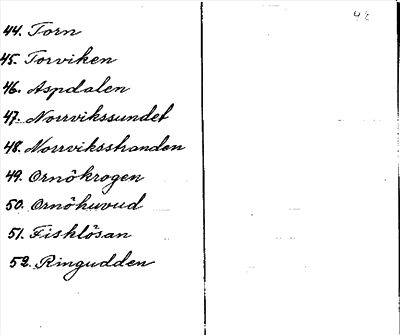 42
44. Torn
45. Torviken
46. Aspdalen
47. Norrvikssundet
48. Norrviksstranden
49. Ornökrogen
50. Ornöhuvud
51. Fisklösan
52. Ringudden